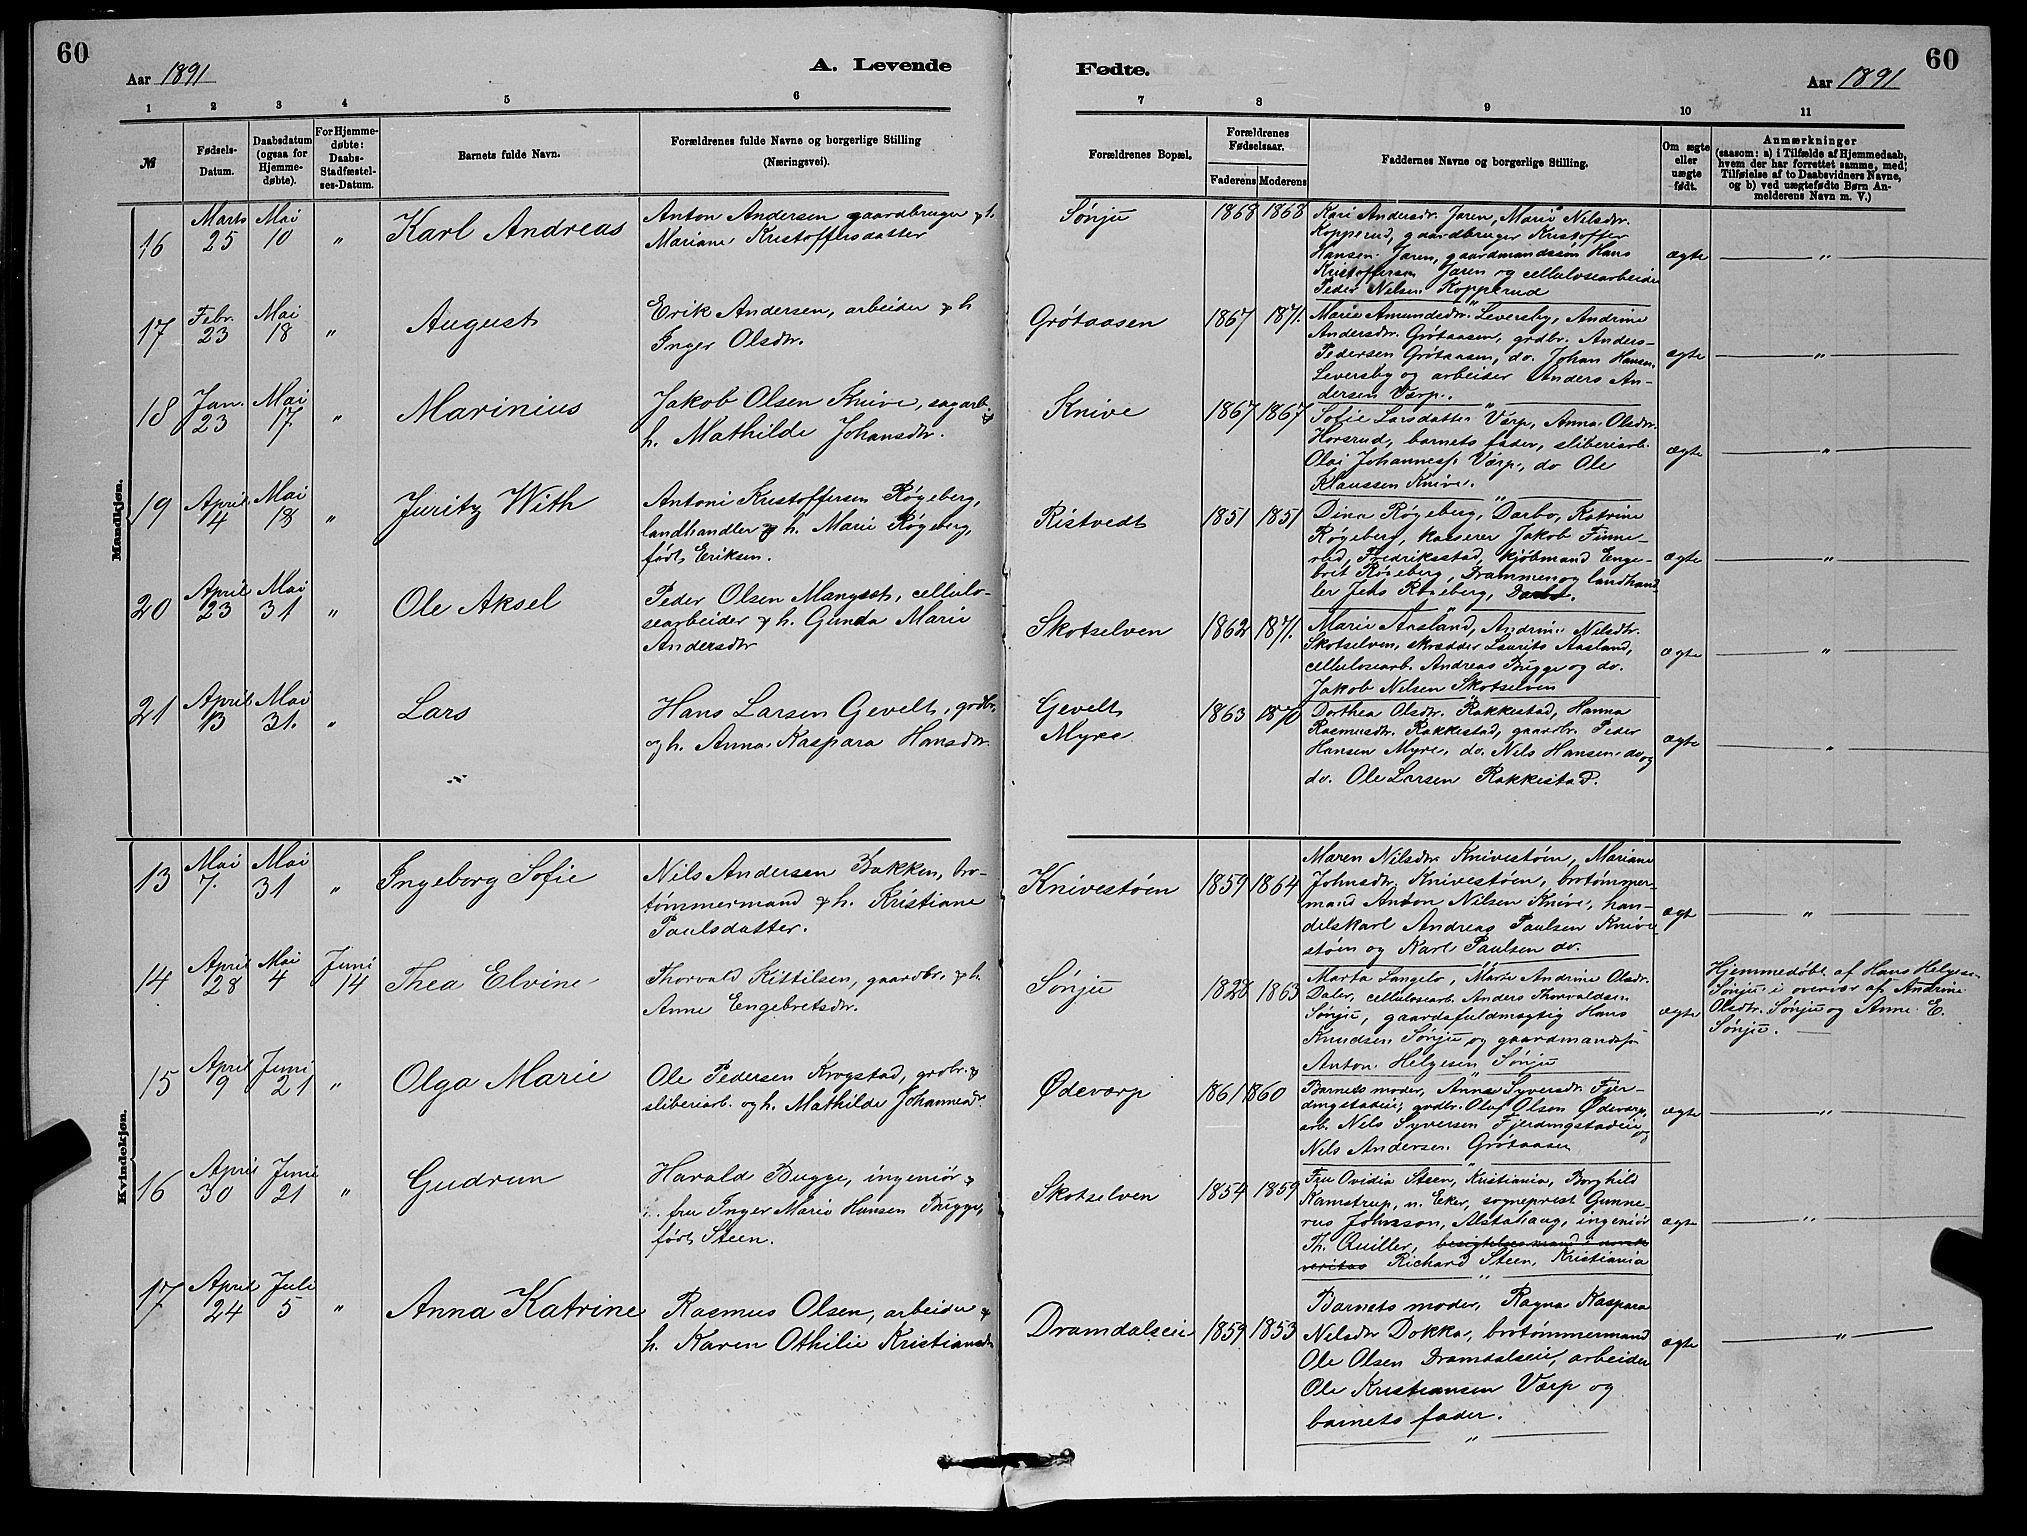 60
Aar 1891
A. Levende
Fødte.
Aar 1891
60
1 2 3 4 5 6 7 8 9 10 11
№
Fødsels-
Datum.
Daabsdatum
(ogsaa for
Hjemme-
døbte).
For Hjemme-
døbte:
Daabs-
Stadfæstel-
ses-Datum.
Barnets fulde Navn.
Forældrenes fulde Navne og borgerlige Stilling
(Næringsvei).
Forældrenes Bopæl.
Forældrenes
Fødselsaar.
Faderens Moderens
Faddernes Navne og borgerlige Stilling.
Om ægte
eller
uægte
født.
Anmærkninger
(saasom: a) i Tilfælde af Hjemmedaab,
hvem der har forrettet samme, med
Tilføielse af to Daabsvidners Navne,
og b) ved uægtefødte Børn An-
melderens Navn m. V.)
Mandkjøn.
16
Marts
25
Mai
10
"
Karl Andreas
Anton Andersen gaardbruger & h.
Mariane Kristoffersdatter
Sønju
1868 1868
Kari Andersdr. Jaren, Marie Nilsdr.
Kopperud, gaardbruger Kristoffer
Hansen Jaren, gaardmandssøn Hans
Kristoffersen Jaren og cellulosearbeider
Peder Nilsen Kopperud
ægte
"
17
Febr.
23
Mai
18
"
August
Erik Andersen, arbeider & h
Inger Olsdtr.
Grøtaasen
1867 1871.
Marie Amundsdr. Leversby, Andrine
Andersdr. Grøtaasen, grdbr. Anders
Pedersen Grøtaasen, do. Johan Hansen
Leversby og arbeider Anders An-
dersen Værp.
ægte
"
18
Jan.
23
Mai
17
"
Marinius
Jakob Olsen Knive, sagarb. &
h. Mathilde Johansdtr.
Knive
1867 1867
Sofie Larsdatter Værp, Anna Olsdtr.
Horsrud, barnets fader, sliberiarb.
Olai Johanness. Værp, do Ole
Klaussen Knive.
ægte
"
19
April
4
Mai
18
"
Juritz With
Antoni Kristoffersen Røgeberg,
landhandler & h. Marie Røgeberg,
født Eriksen.
Ristvedt
1851 1851
Dina Røgeberg, Darbo, Katrine
Røgeberg, kasserer Jakob Finne-
rld, Fredriksstad, kjøbmand Enge-
bret Røgeberg, Drammen og landhand
ler Jens Røgeberg, Darbo.
ægte
"
20
April
23
Mai
31
"
Ole Aksel
Peder Olsen Mangset, cellulo-
searbeider & h. Gunda Marie
Andersdtr
Skotselven
1862 1871.
Marie Aasland, Andrine Nilsdtr.
Skotselven, skrædder Laurits Aasland,
cellulosearb. Andreas Bugge og do.
Jakob Nilsen Skotselven
ægte
"
21
April
13
Mai
31.
"
Lars
Hans Larsen Gevelt, grdbr.
og h. Anna Kaspara Hansdtr.
Gevelt
Myre
1863 1870
Dorthea Olsdtr. Rakkestad, Hanna
Rasmusdtr. Rakkestad, gaardbr. Peder
Hansen Myre, do. Nils Hansen do og
do. Ole Larsen Rakkestad.
ægte
"
Kvindekjøn.
13
Mai
7.
Mai
31
"
Ingeborg Sofie
Nils Andersen Bakken, bro-
tømmermand & h. Kristiane
Paulsdatter.
Knivestøen
1859 1864
Maren Nilsdtr Knivestøen, Mariane
Johnsdtr. Knivestøen, brotømmer-
mand Anton Nilsen Knive, han-
delskarl Andreas Paulsen Knive
støen og Karl Paulsen do.
ægt
"
14
April
28
Mai
4
Juni
14
Thea Elvine
Thorvald Kittilsen, gaardbr. & h.
Anne Engebretsdtr.
Sønju
1828 1863
Marta Langelo, Marte Andrine Olsdr.
Daler, cellulosearb. Anders Thorvaldsen
Sønju, gaardsfuldmægtig Hans
Knudsen Sønju og gaardmandss.
Anton Helgesen Sønju
ægte
Hjemmedøbt af Hans Helgesen
Sønju i overvær af Andrine
Olsdtr. Sønju og Anne E.
Sønju.
15
April
9
Juni
21
"
Olga Marie
Ole Pedersen Krogstad, grdbr. &
sliberiarb. og h. Mathilde Johannesdr.
Ødeværp
1861 1860
Barnets moder, Anna Syversdr. Fjer-
dingstadeie, grdbr. Oluf Olsen Ødeværp,
arb. Nils Syversen Fjerdingstadeie og
Nils Andersen Grøtaasen
ægte
"
16
April
30
Juni
21
"
Gudrun
Harald Bugge, ingeniør &
fru Inger Marie Hansen Bugge,
født Steen.
Skotselven
1854 1859
Fru Ovidia Steen, Kristiania, Borghild
Kamstrup, n. Eker, sogneprest Gunne-
rus Johnson, Alstahaug, ingeniør
Th. Quiller, besigtelsesmand i norske
veritas Richard Steen, Kristiania
ægte
"
17
April
24
Juli
5
"
Anna Katrine
Rasmus Olsen, arbeider &
h. Karen Othilie Kristiansdtr
Dramdalseie
1859. 1853
Barnets moder, Ragna Kaspara
Nilsdtr Dokka, brotømmermand
Ole Olsen Dramdalseie, arbeider
Ole Kristiansen Værp og
barnets fader.
ægte
"